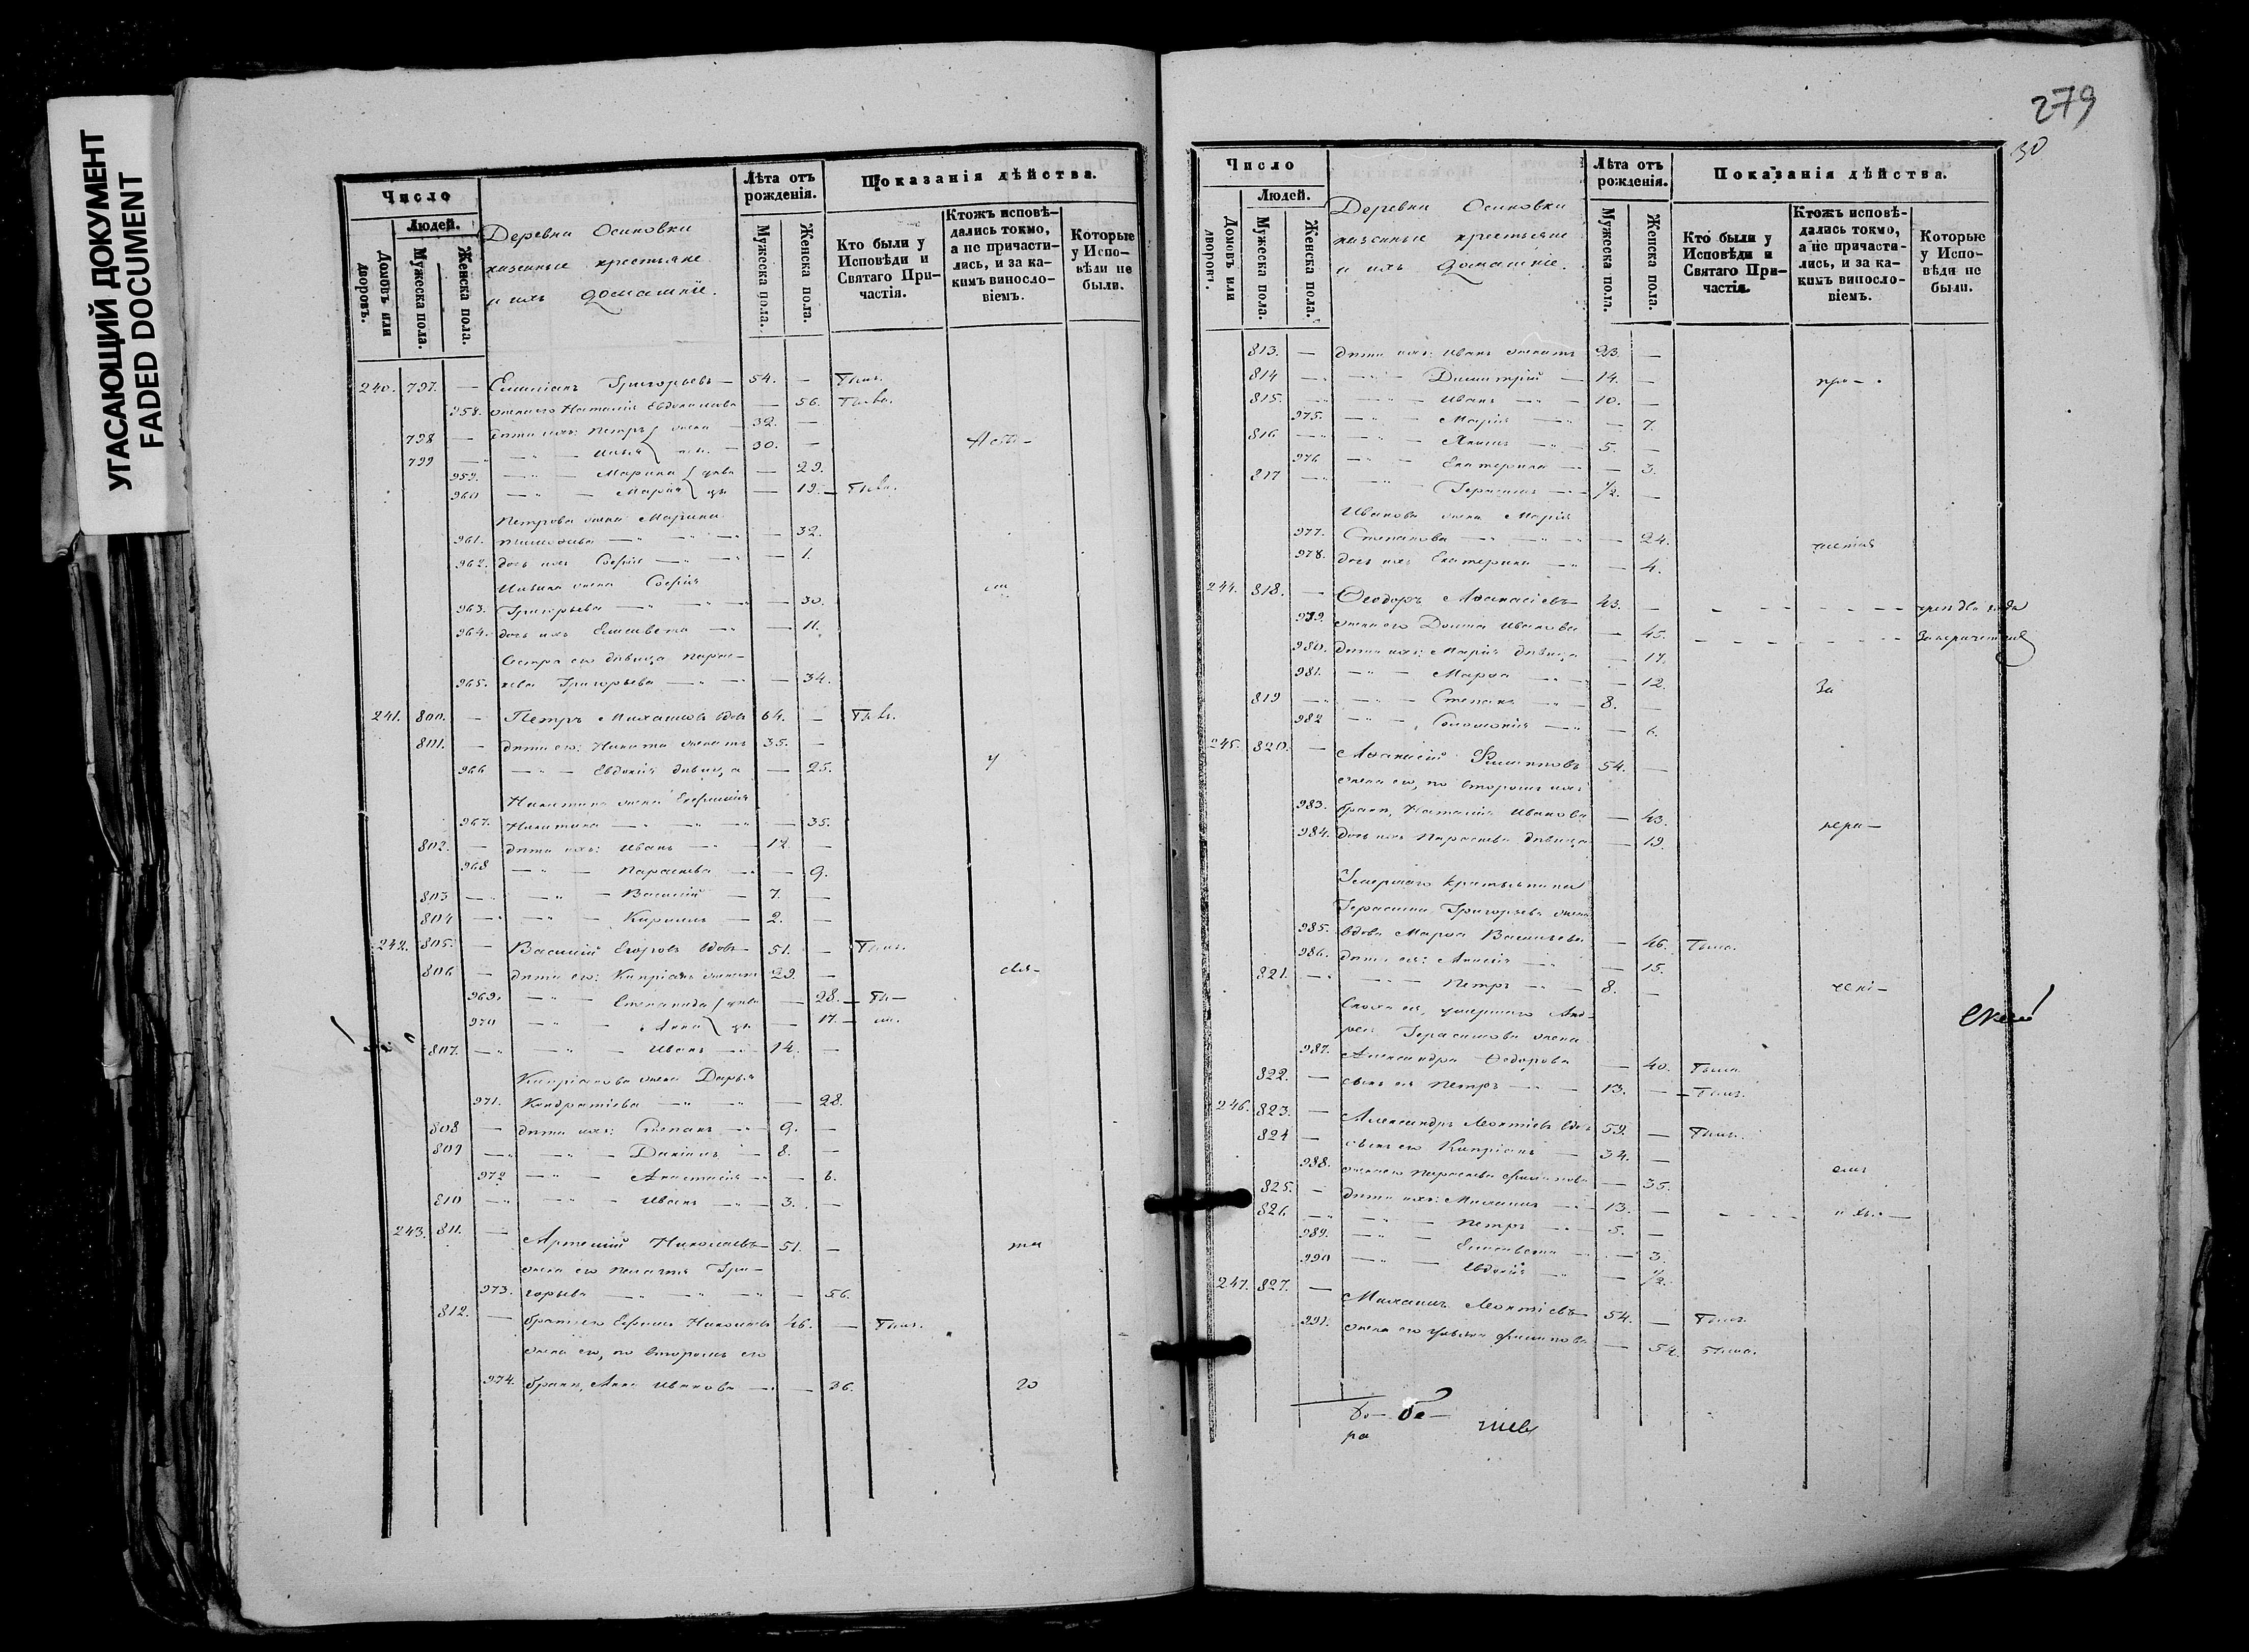 УГАСАЮЩИЙ ДОКУМЕНТ
FADED DOCUMENT
Число
Людей.
Домовъ или дворовъ.
Мужеска пола.
Женска пола.
Деревни Осиновки
казенные крестьяне
и ихъ домашніе.
Лѣта отъ рожденія.
Мужеска пола.
Женска пола.
Показанія дѣйства.
Кто были у Исповѣди и Святаго Причастія.
Ктожъ исповѣдались токмо, а не причастились, и за какимъ винословіемъ.
Которые у Исповѣди не были.
240. 797. — Емиліанъ Григорьевъ — 54. —
958. жена его Наталія Евдокимова — 56.
798 — дѣти ихъ: Петръ жена 32. —
799 — 30. —
959. — Марина — 29.
960 — Марія — 19.
Петрова жена Марина
961. — 32.
962. дочь ихъ Софія — 1.
жена Софія
963. Григорьева — 30.
964. дочь ихъ Елисавета — 11.
Сестра его дѣвица Парас-
965. кева Григорьева — 34.
241. 800. — Петръ Михаиловъ вдов 64. —
801. — дѣти его: Никита женатъ 35. —
966 — Евдокія дѣвица — 25.
Никитина жена Евфимія
967. Никитина — 35.
802. — дѣти ихъ: Иванъ — 12. —
968 — Параскева — 9.
803 — Василій — 7. —
804 — Кириллъ — 2. —
242. 805. — Василій Егоровъ вдовъ 51. —
806 — дѣти его: Кипріанъ женатъ 29. —
969. — Степанида — 28.
970 — Анна — 17.
807. — Иванъ — 14. —
Кипріанова жена Дарья
971. Кондратіева — 28.
808 — дѣти ихъ: Степанъ — 9. —
809 — Даніилъ — 8. —
972 — Анастасія — 6.
810 — Иванъ — 3. —
243. 811. — Артемій Николаевъ 51. —
жена его Пелагія Гри-
973. горьева — 56.
812. — братъ его Ефимъ Николаевъ 46. —
жена его, по второмъ его
974. бракѣ, Анна Иванова — 36.
279
30
Число
Людей.
Домовъ или дворовъ.
Мужеска пола.
Женска пола.
Деревни Осиновки
казенные крестьяне
и ихъ домашніе.
Лѣта отъ рожденія.
Мужеска пола.
Женска пола.
Показанія дѣйства.
Кто были у Исповѣди и Святаго Причастія.
Ктожъ исповѣдались токмо, а не причастились, и за какимъ винословіемъ.
Которые у Исповѣди не были.
813. — дѣти ихъ: Иванъ женатъ 23. —
814 — Димитрій — 14. —
815. — Иванъ — 10. —
975. — Марія — 7.
816 — Акимъ — 5. —
976 — Екатерина — 3.
817 — Герасимъ — 1/2. —
Иванова жена Марія
977. Степанова — 24.
978. дочь ихъ Екатерина — 4.
244. 818. — Ѳеодоръ Аѳанасіевъ 43. —
979. жена его Домна Иванова — 45.
980. дѣти ихъ: Марія дѣвица — 17.
981. — Марѳа — 12. За
819 — Степанъ — 8. —
982 — Соломонія — 6.
245. 820. — Аѳанасій Филиповъ 54. —
жена его, по второмъ ихъ
983. бракѣ, Наталія Иванова — 43.
984. дочь ихъ Параскева дѣвица — 19.
Умершаго крестьянина
Герасима Григорьева жена
985. вдова Марѳа Васильева — 46.
986. дѣти ея: — 15.
821. — Петръ — 8. —
Сноха ея, умершаго Анд-
рея Герасимова жена
987. Александра Ѳедорова — 40.
822. — сынъ ея Петръ — 13. —
246. 823. — Александръ Леонтіевъ вдов 59. —
824 — сынъ его Кипріанъ — 34. —
988. жена его Параскева Филипова — 35.
825. — дѣти ихъ: Михаилъ — 13. —
826. — Петръ — 5. —
989. — Елисавета — 3.
990 — Евдокія — 1/2.
247. 827. — Михаилъ Леонтіевъ 54. —
991. жена его Филипова — 54.